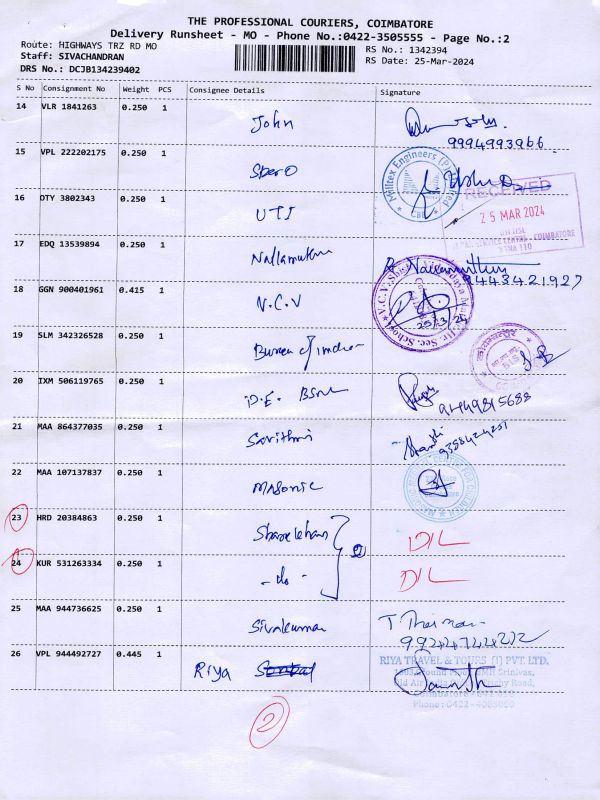 THE PROFESSIONAL COURIERS, COIMBATORE
Delivery Runsheet - MO - Phone No.:0422-3505555 - Page No.:2
Route: HIGHWAYS TRZ RD MO RS No.: 1342394
Staff: SIVACHANDRAN RS Date: 25-Mar-2024
DRS No.: DCJB134239402
S No Consignment No Weight PCS Consignee Details Signature
14 VLR 1841263 0.250 1 John
9994993966
15 VPL 222202175 0.250 1 Sbero
Milltex Engineers (P)
RECEIVED
16 DTY 3802343 0.250 1 UTI
25 MAR 2024
COIMBATORE
17 EDQ 13539894 0.250 1 Nallamuthu
9443421927
18 GGN 900401961 0.415 1 V.C.V
V.C.V. Hr. Sec. School
25/3/24
19 SLM 342326528 0.250 1 Bureau of Indian
20 IXM 506119765 0.250 1 D.E. BSNL
21 MAA 864377035 0.250 1 Savithri
22 MAA 107137837 0.250 1 Masonic
23 HRD 20384863 0.250 1 Sharekhan DIL
24 KUR 531263334 0.250 1 - do - DIL
25 MAA 944736625 0.250 1 Sivakumar
26 VPL 944492727 0.445 1 Riya
RIYA TRAVEL & TOURS (I) PVT. LTD.
2